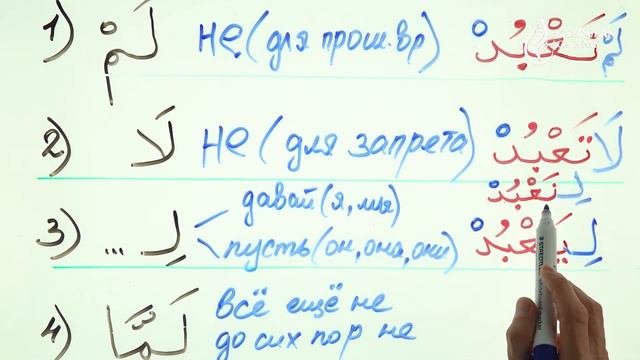 1) لَمْ не (для прош.вр) لَمْ تَعْبُدْ
2) لَا не (для запрета) لَا تَعْبُدْ
давай (я, мы) لِنَعْبُدْ
3) لِـ ... пусть (он, она, они) لِيَعْبُدْ
4) لَمَّا всё ещё не
до сих пор не